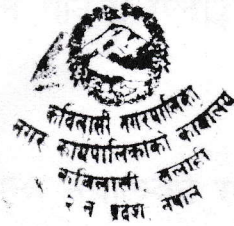 कविलासी नगरपालिका
नगर कार्यपालिकाको कार्यालय
कविलासी सर्लाही
२ नं प्रदेश नेपाल